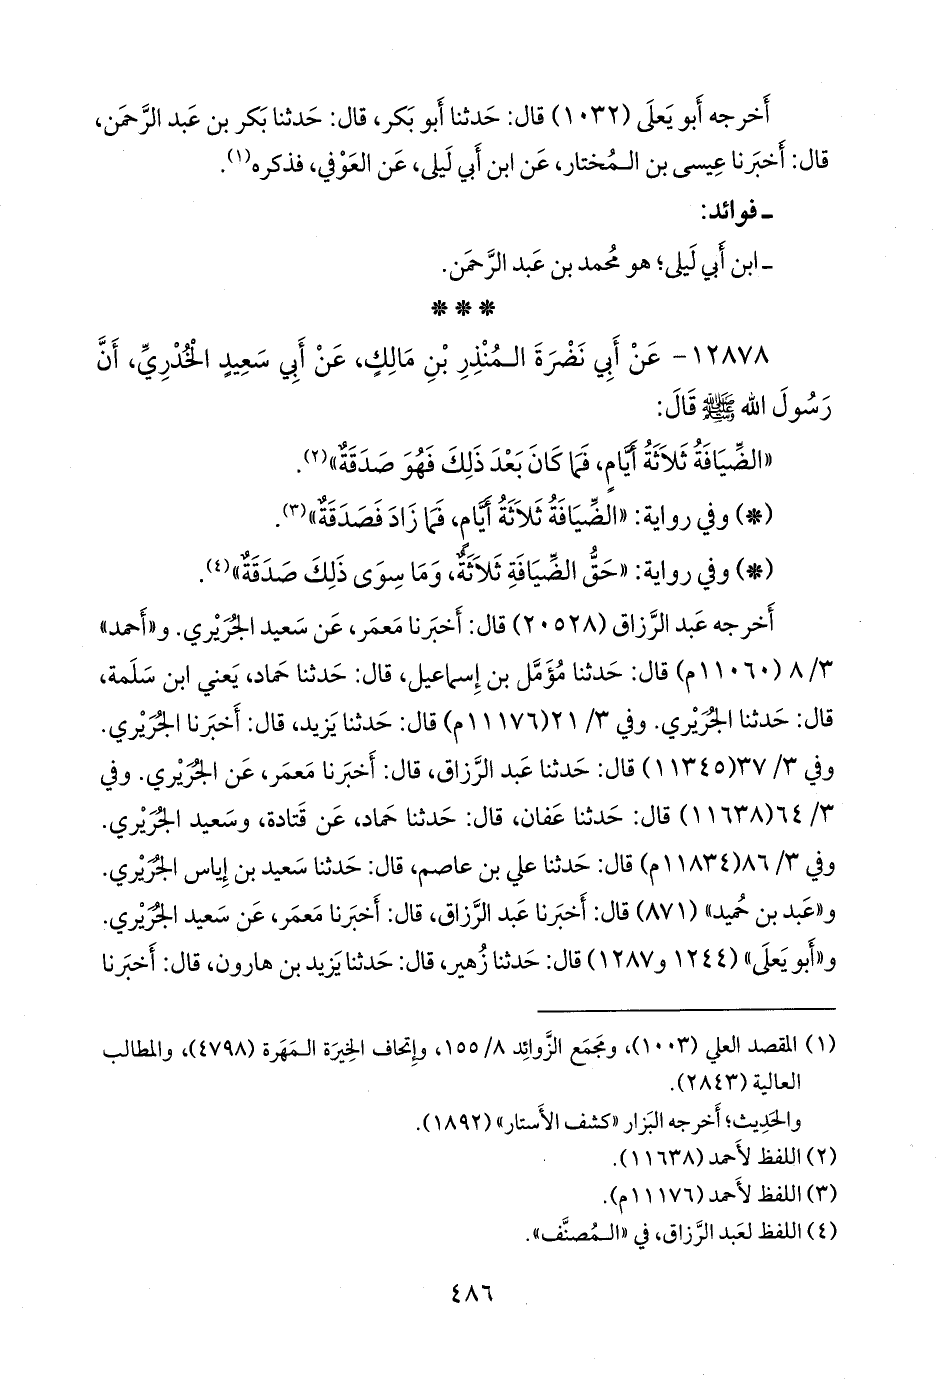 أَخرجه أَبو يَعلَى (١٠٣٢) قال: حَدثنا أَبو بَكر، قال: حَدثنا بَكر بن عَبد الرَّحمَن،
قال: أَخبَرنا عِيسى بن الـمُختار، عَن ابن أَبي لَيلى، عَن العَوْفي، فذكره(١).
ـ فوائد:
ـ ابن أَبي لَيلى؛ هو مُحمد بن عَبد الرَّحمَن.
* * *
١٢٨٧٨- عَنْ أَبِي نَضْرَةَ الـمُنْذِرِ بْنِ مَالِكٍ، عَنْ أَبِي سَعِيدٍ الْخُدْرِيِّ، أَنَّ
رَسُولَ الله ﷺ قَالَ:
«الضِّيَافَةُ ثَلَاثَةُ أَيَّامٍ، فَمَا كَانَ بَعْدَ ذَلِكَ فَهُوَ صَدَقَةٌ»(٢).
(*) وفي رواية: «الضِّيَافَةُ ثَلَاثَةُ أَيَّامٍ، فَمَا زَادَ فَصَدَقَةٌ»(٣).
(*) وفي رواية: «حَقُّ الضِّيَافَةِ ثَلَاثَةٌ، وَمَا سِوَى ذَلِكَ صَدَقَةٌ»(٤).
أَخرجه عَبد الرَّزاق (٢٠٥٢٨) قال: أَخبَرنا مَعمَر، عَن سَعيد الجُرَيْري. و«أَحمد»
٣/ ٨ (١١٠٦٠م) قال: حَدثنا مُؤَمَّل بن إِسماعيل، قال: حَدثنا حَماد، يَعني ابن سَلَمة،
قال: حَدثنا الجُرَيْري. وفي ٣/ ٢١(١١١٧٦م) قال: حَدثنا يَزيد، قال: أَخبَرنا الجُرَيْري.
وفي ٣/ ٣٧(١١٣٤٥) قال: حَدثنا عَبد الرَّزاق، قال: أَخبَرنا مَعمَر، عَن الجُرَيْري. وفي
٣/ ٦٤(١١٦٣٨) قال: حَدثنا عَفان، قال: حَدثنا حَماد، عَن قَتادة، وسَعيد الجُرَيْري.
وفي ٣/ ٨٦(١١٨٣٤م) قال: حَدثنا علي بن عاصم، قال: حَدثنا سَعيد بن إِياس الجُرَيْري.
و«عَبد بن حُميد» (٨٧١) قال: أَخبَرنا عَبد الرَّزاق، قال: أَخبَرنا مَعمَر، عَن سَعيد الجُرَيْري.
و«أَبو يَعلَى» (١٢٤٤ و١٢٨٧) قال: حَدثنا زُهير، قال: حَدثنا يَزيد بن هارون، قال: أَخبَرنا
(١) المقصد العلي (١٠٠٣)، ومَجمَع الزَّوائِد ٨/ ١٥٥، وإِتحاف الخِيَرَة الـمَهَرة (٤٧٩٨)، والمطالب
العالية (٢٨٤٣).
والحَدِيث؛ أَخرجه البَزار «كشف الأَستار» (١٨٩٢).
(٢) اللفظ لأَحمد (١١٦٣٨).
(٣) اللفظ لأَحمد (١١١٧٦م).
(٤) اللفظ لعَبد الرَّزاق، في «الـمُصنَّف».
٤٨٦